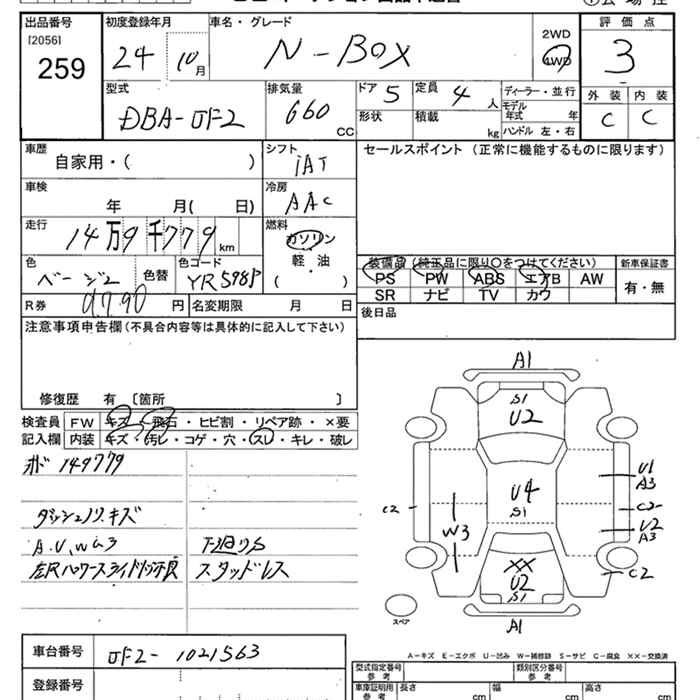 出品番号
[2056]
259
初度登録年月
24 10月
車名・グレード
N-BOX
2WD
4WD
評価点
3
型式
DBA-JF2
排気量
660
CC
ドア 5
定員 4 人
形状
積載
kg
ディーラー・並行
モデル
年式 年
ハンドル 左・右
外装 内装
C C
車歴
自家用・( )
シフト
iAT
セールスポイント (正常に機能するものに限ります)
車検
年 月( 日)
冷房
AAC
走行
14万9千779km
燃料
ガソリン
軽・油
( )
色
ベージュ2
色替
色コード
YR598P
装備品 (純正品に限り〇をつけてください)
新車保証書
PS PW ABS エアB AW
有・無
SR ナビ TV カワ
R券 9790 円
名変期限 月 日
後日品
注意事項申告欄(不具合内容等は具体的に記入して下さい)
修復歴 有 〔箇所 〕
検査員
記入欄
FW キズ・飛石・ヒビ割・リペア跡・×要
内装 キズ・汚レ・コゲ・穴・スレ・キレ・破レ
149779
ダッシュノリ、キズ
A.U,W小3
下廻りS
スタッドレス
A1
S1
U2
U1
A3
C2
U4
S1
C2
W3
U2
A3
XX
U2
S1
C2
スペア
A1
A-キズ E-エクボ U-凹み W-補修跡 S-サビ C-腐食 XX-交換済
車台番号
JF2-1021563
登録番号
型式指定番号
参考
類別区分番号
参考
車庫証明用
参考
長さ cm
幅 cm
高さ cm